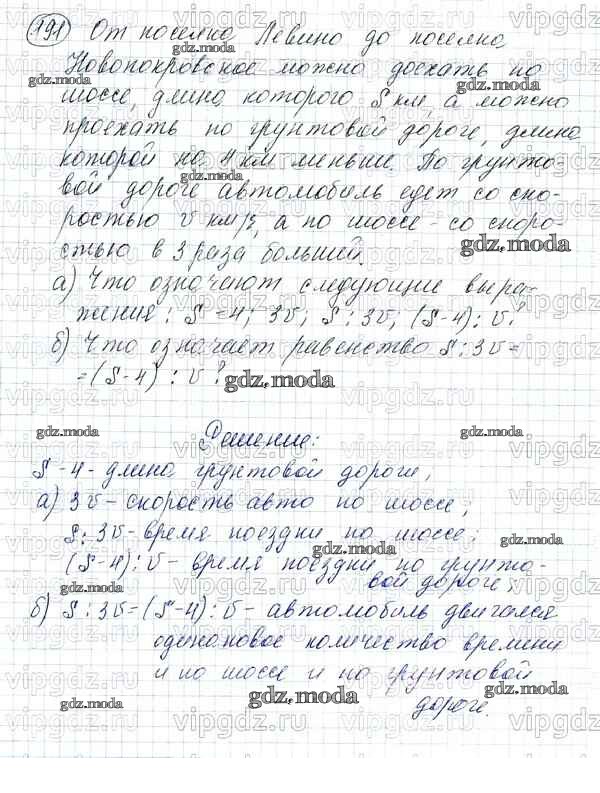 191 От поселка Левино до поселка
Новопокровское можно доехать по
шоссе, длина которого S км, а можно
проехать по грунтовой дороге, длина
которой на 4 км меньше. По грунто-
вой дороге автомобиль едет со ско-
ростью v км/ч, а по шоссе - со скоро-
стью в 3 раза большей.
а) Что означают следующие выра-
жения: S = 4; 3v; S : 3v; (S-4) : v?
б) Что означает равенство S : 3v =
= (S-4) : v?
Решение:
S - 4 - длина грунтовой дороги;
а) 3v - скорость авто по шоссе;
S : 3v - время поездки по шоссе;
(S-4) : v - время поездки по грунто-
вой дороге;
б) S : 3v = (S-4) : v - автомобиль двигался
одинаковое количество времени
и по шоссе и по грунтовой
дороге.
gdz.moda
vipgdz.ru